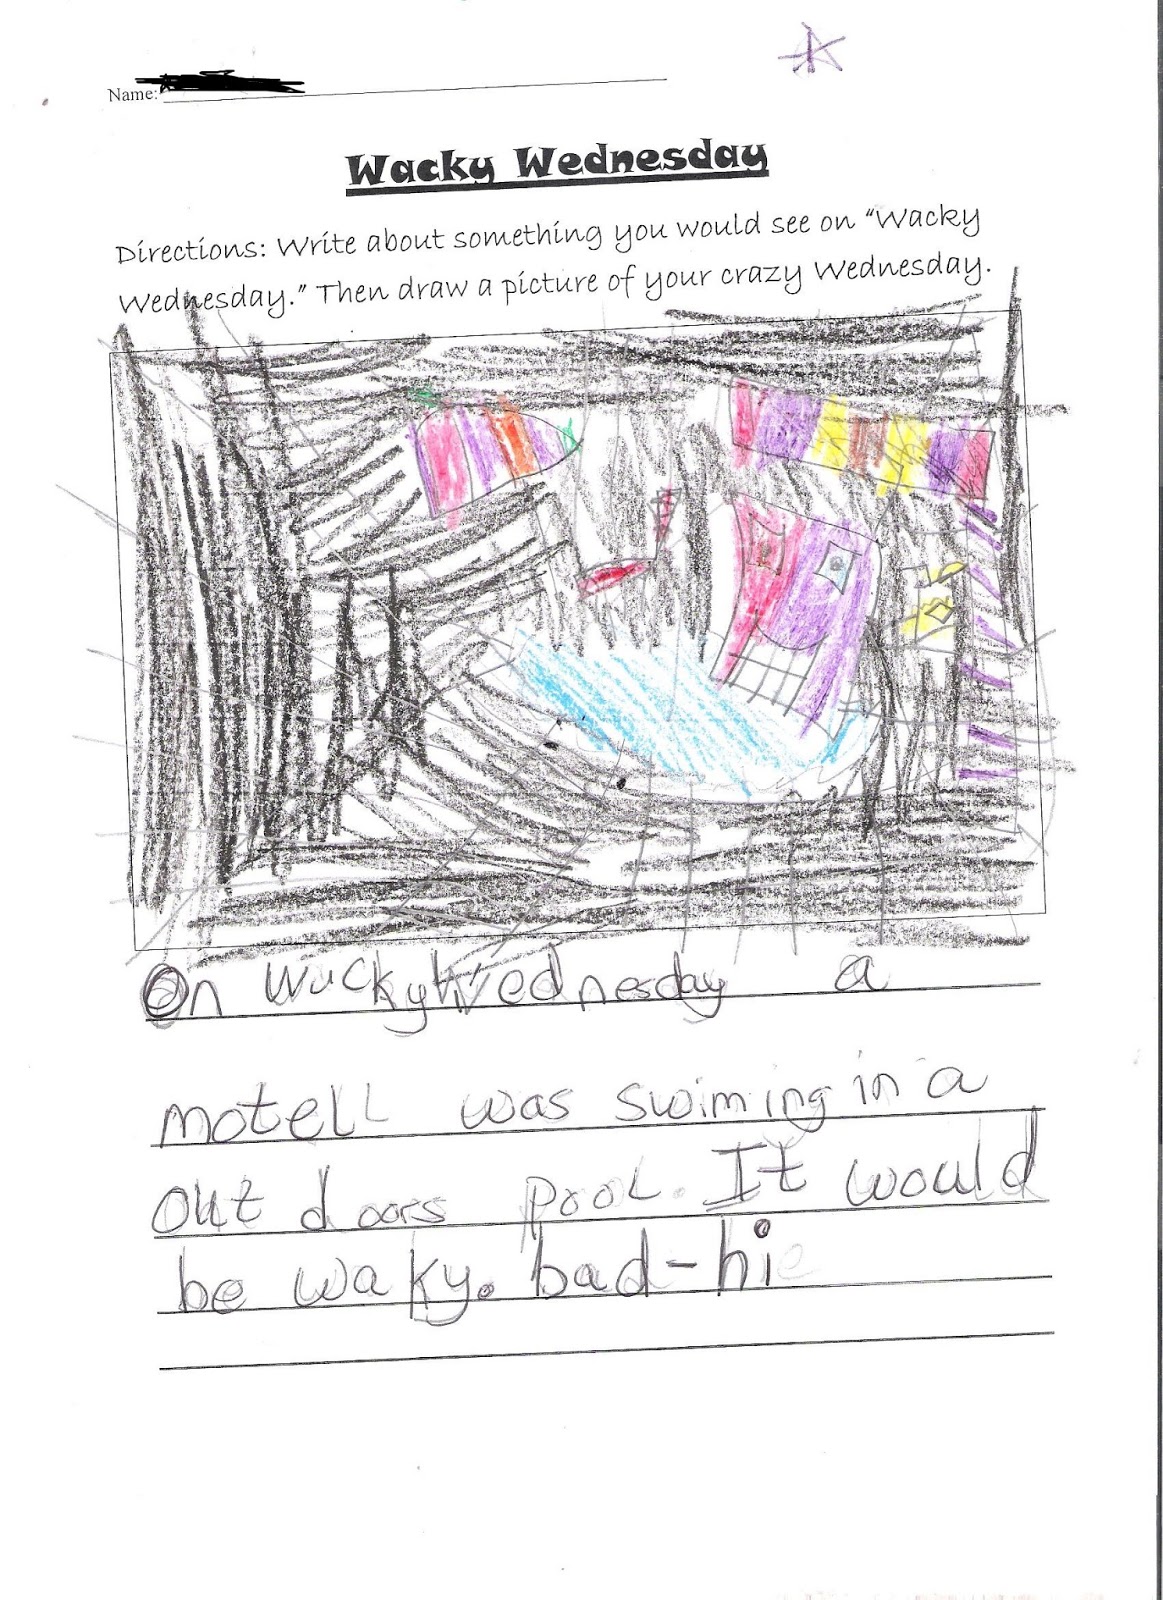 Name:
Wacky Wednesday
Directions: Write about something you would see on “Wacky
Wednesday.” Then draw a picture of your crazy Wednesday.
On Wucky Wednesday a
motell was swiming in a
out doors pool. It would
be waky. bad-hi